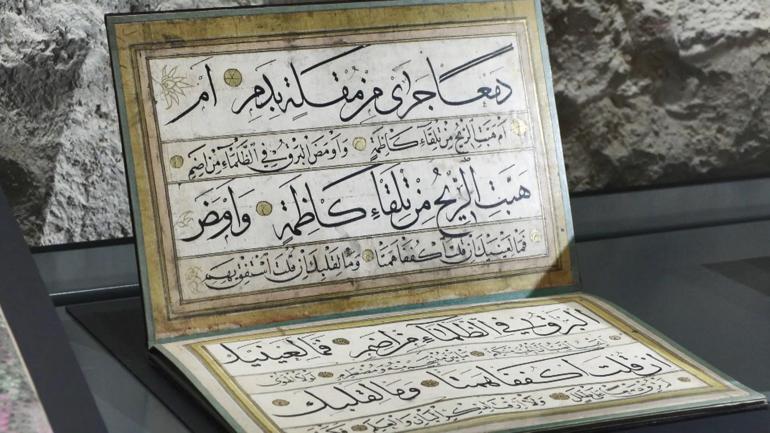 دَمْعًا جَرَى مِنْ مُقْلَةٍ بِدَمِ اَمْ
اَمْ هَبَّتِ الرِّيحُ مِنْ تِلْقَاءِ كَاظِمَةٍ وَاَوْمَضَ الْبَرْقُ فِي الظَّلْمَاءِ مِنْ اِضَمِ
هَبَّتِ الرِّيحُ مِنْ تِلْقَاءِ كَاظِمَةٍ وَاَوْمَضَ
فَمَا لِعَيْنَيْكَ اِنْ قُلْتَ اكْفُفَا هَمَتَا وَمَا لِقَلْبِكَ اِنْ قُلْتَ اسْتَفِقْ يَهِمِ
الْبَرْقُ فِي الظَّلْمَاءِ مِنْ اِضَمِ فَمَا لِعَيْنَيْكَ
اِنْ قُلْتَ اكْفُفَا هَمَتَا وَمَا لِقَلْبِكَ
وَلَا اَرِقْتَ لِذِكْرِ الْبَانِ وَالْعَلَمِ